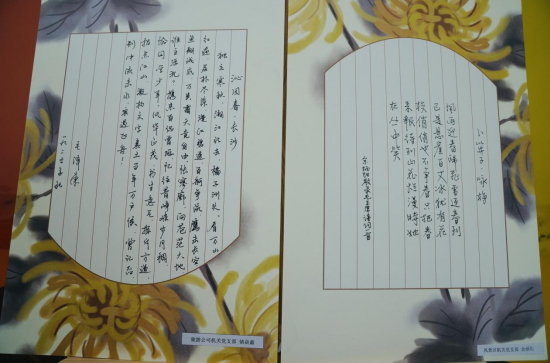 沁园春·长沙
独立寒秋，湘江北去，橘子洲头。看万山
红遍，层林尽染，漫江碧透，百舸争流。鹰击长空，
鱼翔浅底，万类霜天竞自由。怅寥廓，问苍茫大地，
谁主沉浮？携来百侣曾游，忆往昔峥嵘岁月稠。
恰同学少年，风华正茂，书生意气，挥斥方遒。
指点江山，激扬文字，粪土当年万户侯。曾记否，
到中流击水，浪遏飞舟。
毛泽东
一九二五年秋
公司机关党支部
卜算子 咏梅
风雨送春归飞雪迎春到
已是悬崖百丈冰犹有花
枝俏俏也不争春只把春
来报待到山花烂漫时她
在丛中笑
敬录毛主席诗词
公司机关党支部